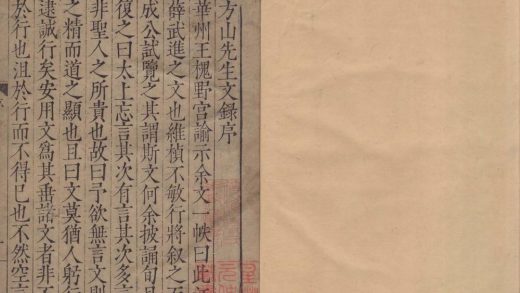 方山先生文錄序
華州王槐野宫諭示余文一帙曰此
薛武進之文也維楨不敏行將叙之
成公試覽之其謂斯文何余披誦句
復之曰太上忘言其次有言其次多言
非聖人之所貴也故曰予欲無言文則
之精而道之顯也且曰文莫猶人躬行
逮誠行矣安用文爲其垂諸文者非不
於行也沮於行而不得已也不然空言